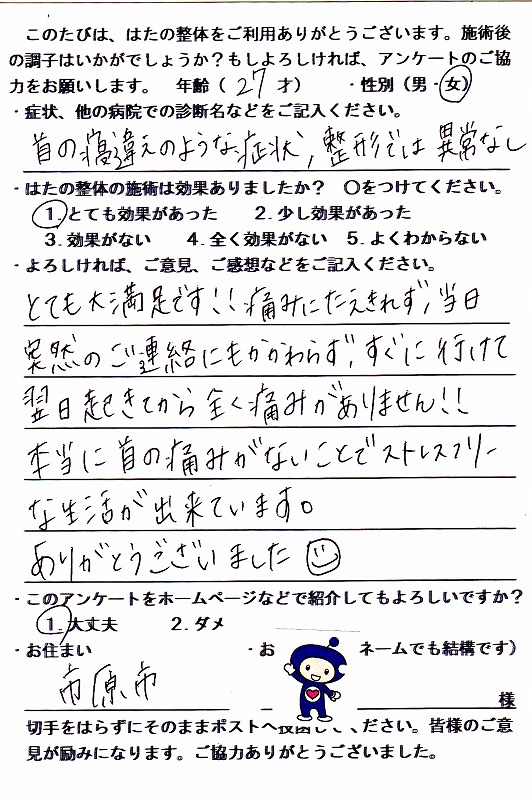 このたびは、はたの整体をご利用ありがとうございます。施術後
の調子はいかがでしょうか？もしよろしければ、アンケートのご協
力をお願いします。 年齢（ 27 才） ・性別（男・女）
・症状、他の病院での診断名などをご記入ください。
首の寝違えのような症状，整形では異常なし
・はたの整体の施術は効果ありましたか？ 〇をつけてください。
1. とても効果があった 2. 少し効果があった
3. 効果がない 4. 全く効果がない 5. よくわからない
・よろしければ、ご意見、ご感想などをご記入ください。
とても大満足です!! 痛みにたえきれず，当日
突然のご連絡にもかかわらず，すぐに行けて
翌日起きてから全く痛みがありません!!
本当に首の痛みがないことでストレスフリー
な生活が出来ています。
ありがとうございました
・このアンケートをホームページなどで紹介してもよろしいですか？
1. 大丈夫 2. ダメ
・お住まい ・お ネームでも結構です）
市原市 様
切手をはらずにそのままポストへ ください。皆様のご意
見が励みになります。ご協力ありがとうございました。